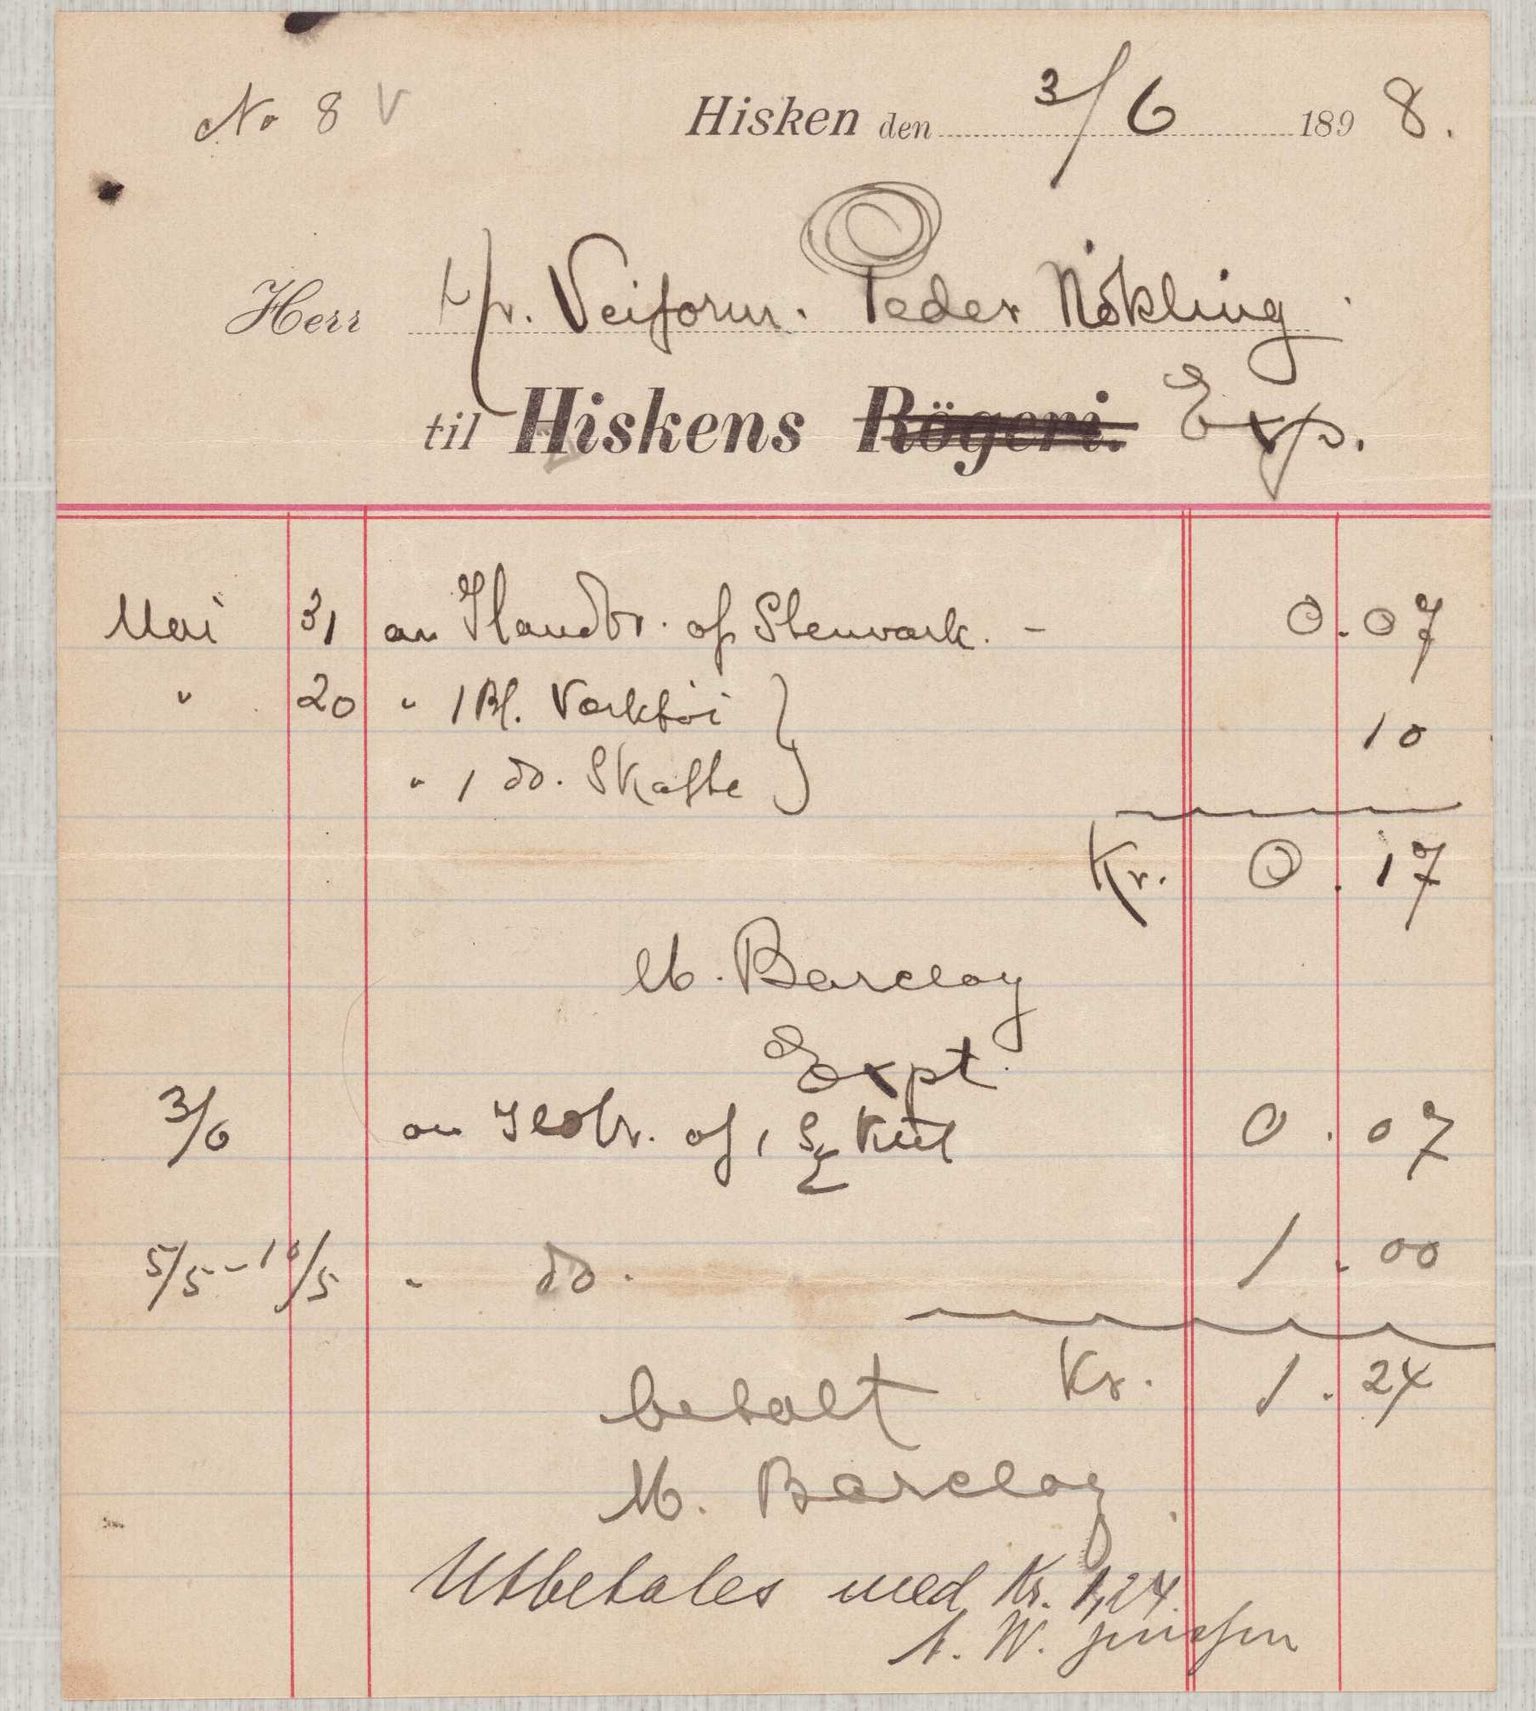 No 8 V
Hisken den 3/6 1898.
Herr Hr. Veiform. Peder Nökling
til Hiskens Rögeri. Exp.
Mai 31 an Ilandbr. af Stenvark. - 0.07
" 20 " 1 Bl. Værktöi
" 1 do. Skafte 10
Kr. 0.17
M. Barclay
Expt.
3/6 an Ilobr. af 1 Kul 0.07
5/5 - 10/5 " do. 1.00
Kr. 1.24
betalt
M. Barclay
Utbetales med Kr. 1,24.
A. W. Jenssen